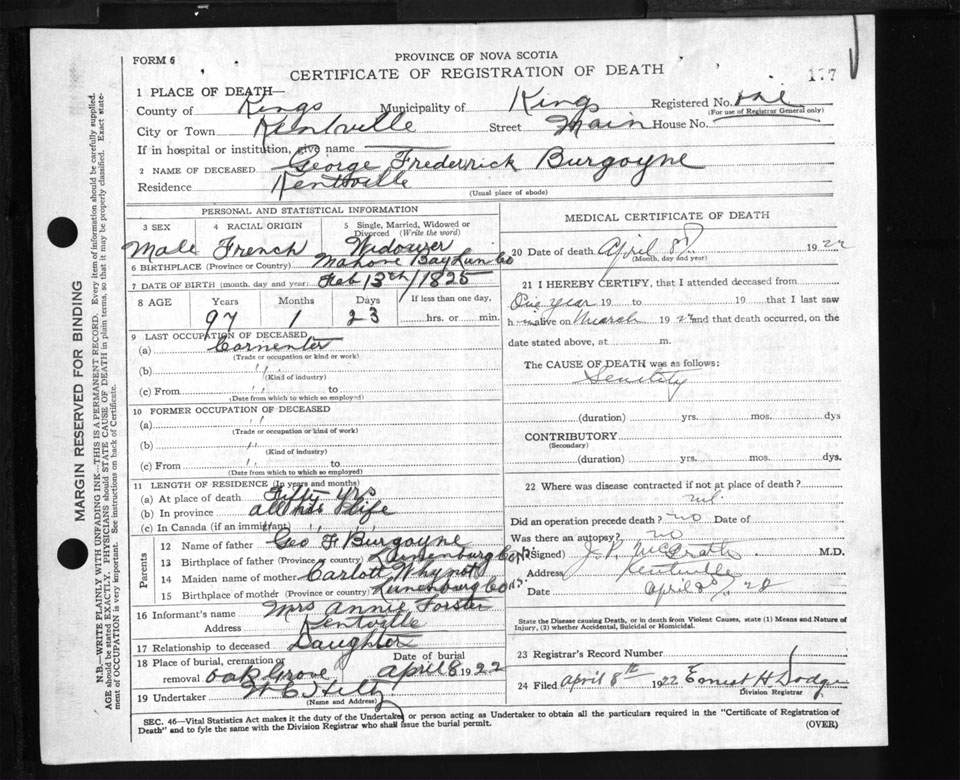 PROVINCE OF NOVA SCOTIA
FORM 6
CERTIFICATE OF REGISTRATION OF DEATH
177
1 PLACE OF DEATH—
County of Kings Municipality of Kings Registered No.
(For use of Registrar General only)
City or Town Kentville Street Main House No.
If in hospital or institution, give name
2 NAME OF DECEASED George Frederrick Burgoyne
Residence Kentville
(Usual place of abode)
PERSONAL AND STATISTICAL INFORMATION
3 SEX 4 RACIAL ORIGIN 5 Single, Married, Widowed or Divorced (Write the word)
Male French Widower
6 BIRTHPLACE (Province or Country) Mahone Bay Lun Co
7 DATE OF BIRTH (month, day and year) Feb 13th/1825
8 AGE Years Months Days If less than one day,
97 1 23 hrs. or min.
9 LAST OCCUPATION OF DECEASED
(a) Carpenter
(Trade or occupation or kind or work)
(b) "
(Kind of industry)
(c) From " to
(Date from which to which so employed)
10 FORMER OCCUPATION OF DECEASED
(a) "
(Trade or occupation or kind of work)
(b) "
(Kind of industry)
(c) From " to
(Date from which to which so employed)
11 LENGTH OF RESIDENCE (In years and months)
(a) At place of death Fifty yrs
(b) In province all his life
(c) In Canada (if an immigrant) " "
Parents
12 Name of father Geo F Burgoyne
13 Birthplace of father (Province or country) Lunenburg Co N.S.
14 Maiden name of mother Carlott Whynot
15 Birthplace of mother (Province or country) Lunenburg Co N.S.
16 Informant's name Mrs Annie Forster
Address Kentville
17 Relationship to deceased Daughter
18 Place of burial, cremation or removal Oak Grove Date of burial April 8 1922
19 Undertaker
(Name and Address)
MEDICAL CERTIFICATE OF DEATH
20 Date of death April 8 1922
(Month, day and year)
21 I HEREBY CERTIFY, that I attended deceased from
One year 19 to 19 that I last saw
h alive on March 1922 and that death occurred, on the
date stated above, at m.
The CAUSE OF DEATH was as follows:
Senility
(duration) yrs. mos. dys
CONTRIBUTORY
(Secondary)
(duration) yrs. mos. dys.
22 Where was disease contracted if not at place of death?
nil
Did an operation precede death? no Date of
Was there an autopsy? no
(Signed) M.D.
Address Kentville
Date April
State the Disease causing Death, or in death from Violent Causes, state (1) Means and Nature of
Injury, (2) whether Accidental, Suicidal or Homicidal.
23 Registrar's Record Number
24 Filed April 8th 1922 Ernest H Dodge
Division Registrar
SEC. 46—Vital Statistics Act makes it the duty of the Undertaker or person acting as Undertaker to obtain all the particulars required in the "Certificate of Registration of
Death" and to fyle the same with the Division Registrar who shall issue the burial permit.
(OVER)
MARGIN RESERVED FOR BINDING
N.B.—WRITE PLAINLY WITH UNFADING INK—THIS IS A PERMANENT RECORD. Every item of information should be carefully supplied.
AGE should be stated EXACTLY. PHYSICIANS should STATE CAUSE OF DEATH in plain terms, so that it may be properly classified. Exact statement of OCCUPATION is very important. See instructions on back of Certificate.